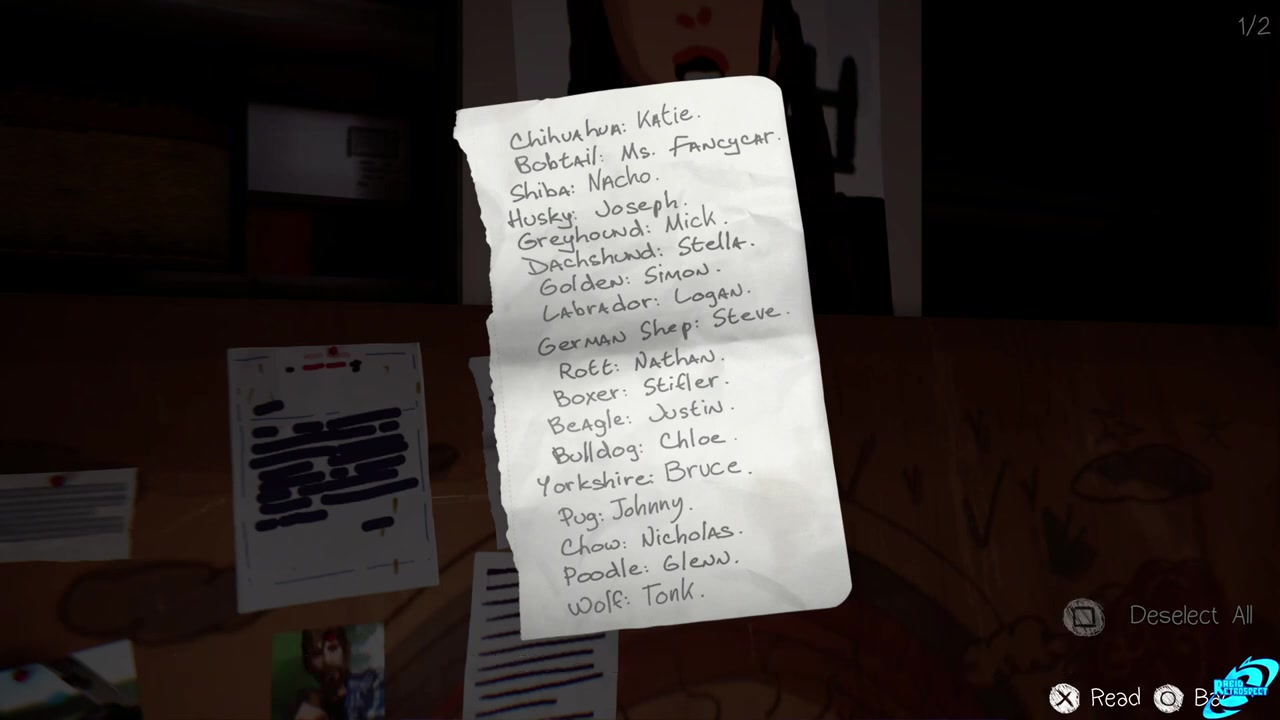 1/2
Chihuahua: Katie.
Bobtail: Ms. Fancycar.
Shiba: Nacho.
Husky: Joseph.
Greyhound: Mick.
Dachshund: Stella.
Golden: Simon.
Labrador: Logan.
German Shep: Steve.
Rott: Nathan.
Boxer: Stifler.
Beagle: Justin.
Bulldog: Chloe.
Yorkshire: Bruce.
Pug: Johnny.
Chow: Nicholas.
Poodle: Glenn.
Wolf: Tonk.
Deselect All
Read
RETROSPECT